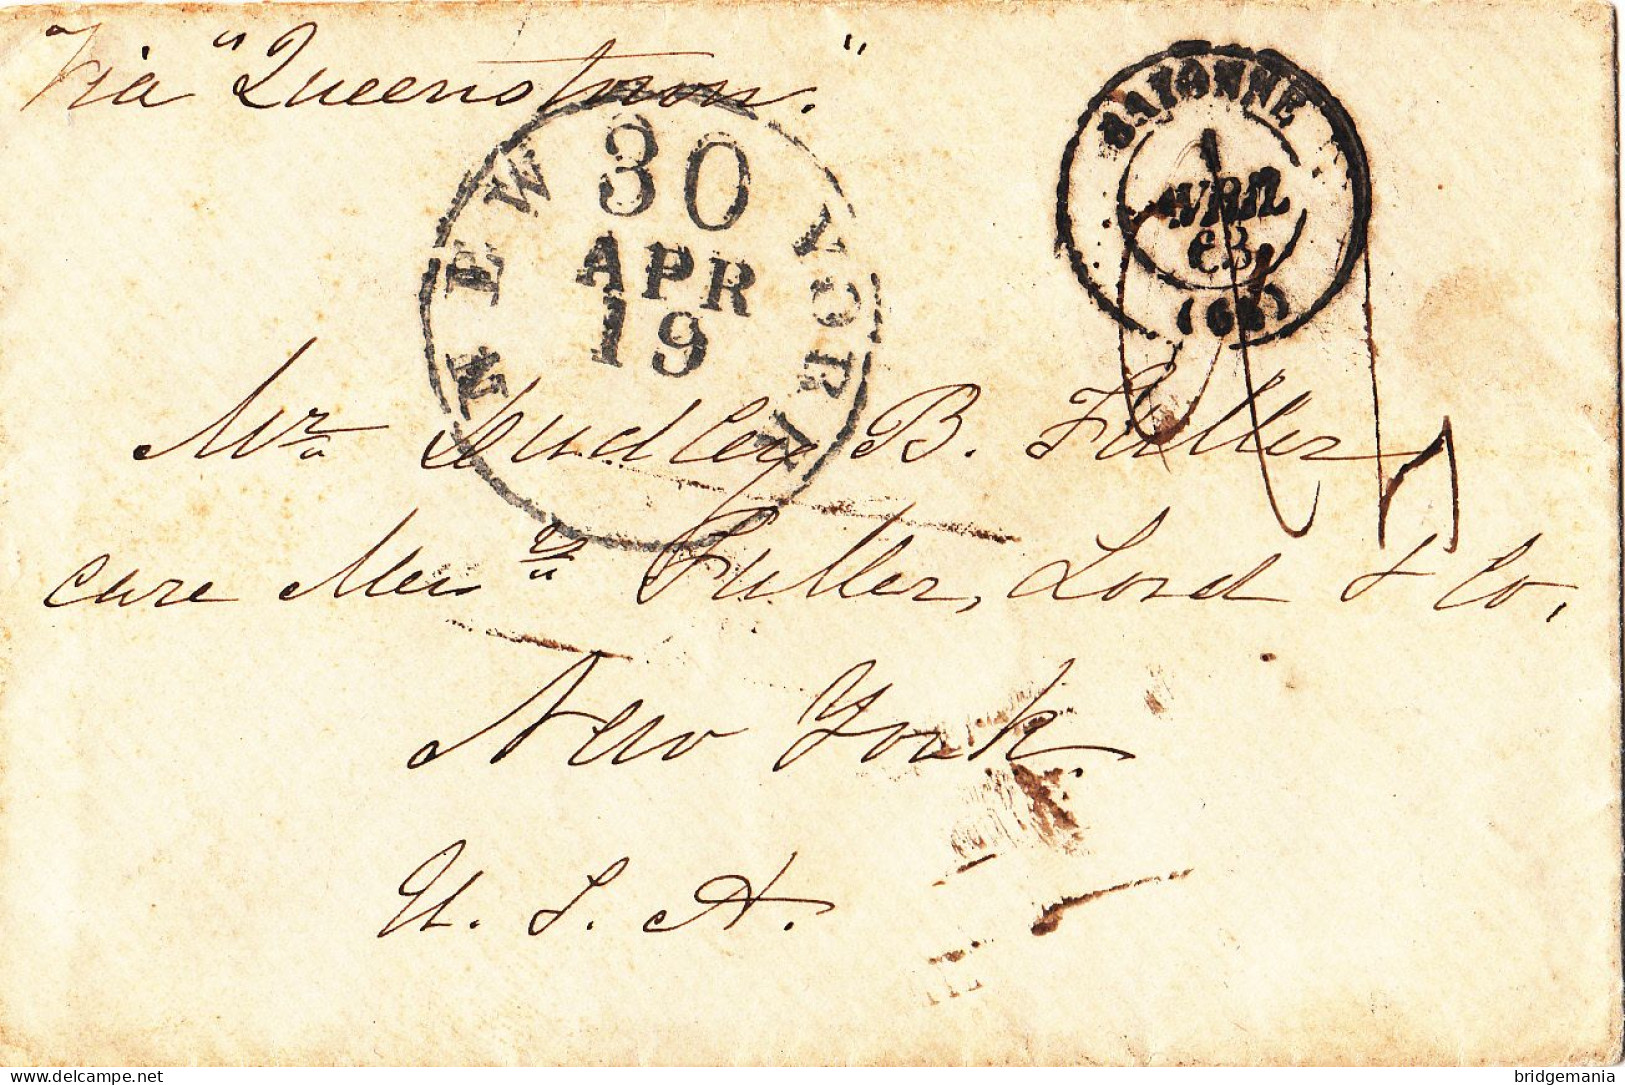 Via "Queenstown."
BAYONNE
1
AVRIL
63
(64)
NEW YORK
30
APR
19
Mr. Dudley B. Fuller,
care Mess. Fuller, Lord & Co,
New York.
U. S. A.
bridgemania